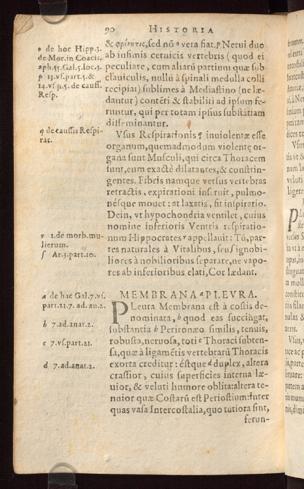 90 HISTORIA
o de hoc Hipp. 3.
de Mor. in Coacis,
aph. 5. Gal. 5. loc. 3.
p 13. vs. part. 5. &
14. vs. p. 5. de causs.
Resp.
q de caussis Respi-
rat.
r 1. de morb. mu-
lierum.
s Ar. 3. part. 10.
a de hac Gal. 7. vs.
part. 21. 7. ad. an. 2.
b 7. ad. anat. 2.
c 7. vs. part. 21.
d 7. ad. anat. 2.
& sed nõ vera fiat. p Nerui duo
ab infimis ceruicis vertebris (quod ei
peculiare, cum aliarũ partium quæ sub
clauiculis, nulli à spinali medulla colli
recipiãt) sublimes à Mediastino (ne læ-
dantur) contẽti & stabiliti ad ipsum fe-
runtur, qui per totam ipsius substãtiam
disseminantur.
Vsus Respirationis q inuiolentæ esse
organum, quemadmodum violentę or-
gana sunt Musculi, qui circa Thoracem
sunt, eum exactè dilatantes, & constrin-
gentes. Fibris namque versus vertebras
retractis, expirationi inseruit, pulmo-
nésque mouet: at laxatis, fit inspiratio.
Dein, vt hypochondria ventilet, cuius
nomine inferioris Ventris respiratio-
num Hippocrates r appellauit: Tũ, par-
tes naturales à Vitalibus, seu s ignobi-
liores à nobilioribus separare, ne vapo-
res ab inferioribus elati, Cor lædant.
MEMBRANA a PLEVRA.
PLeura Membrana est à costis de-
nominata, b quod eas succingat,
substantia b Peritonæo similis, tenuis,
robusta, neruosa, toti c Thoraci subten-
sa, quæ à ligamẽtis vertebrarũ Thoracis
exorta creditur: éstque d duplex, altera
crassior, cuius superficies interna læ-
uior, & veluti humore oblita: altera te-
nuior quæ Costarũ est Periostium: inter
quas vasa Intercostalia, quo tutiora sint,
ferun-